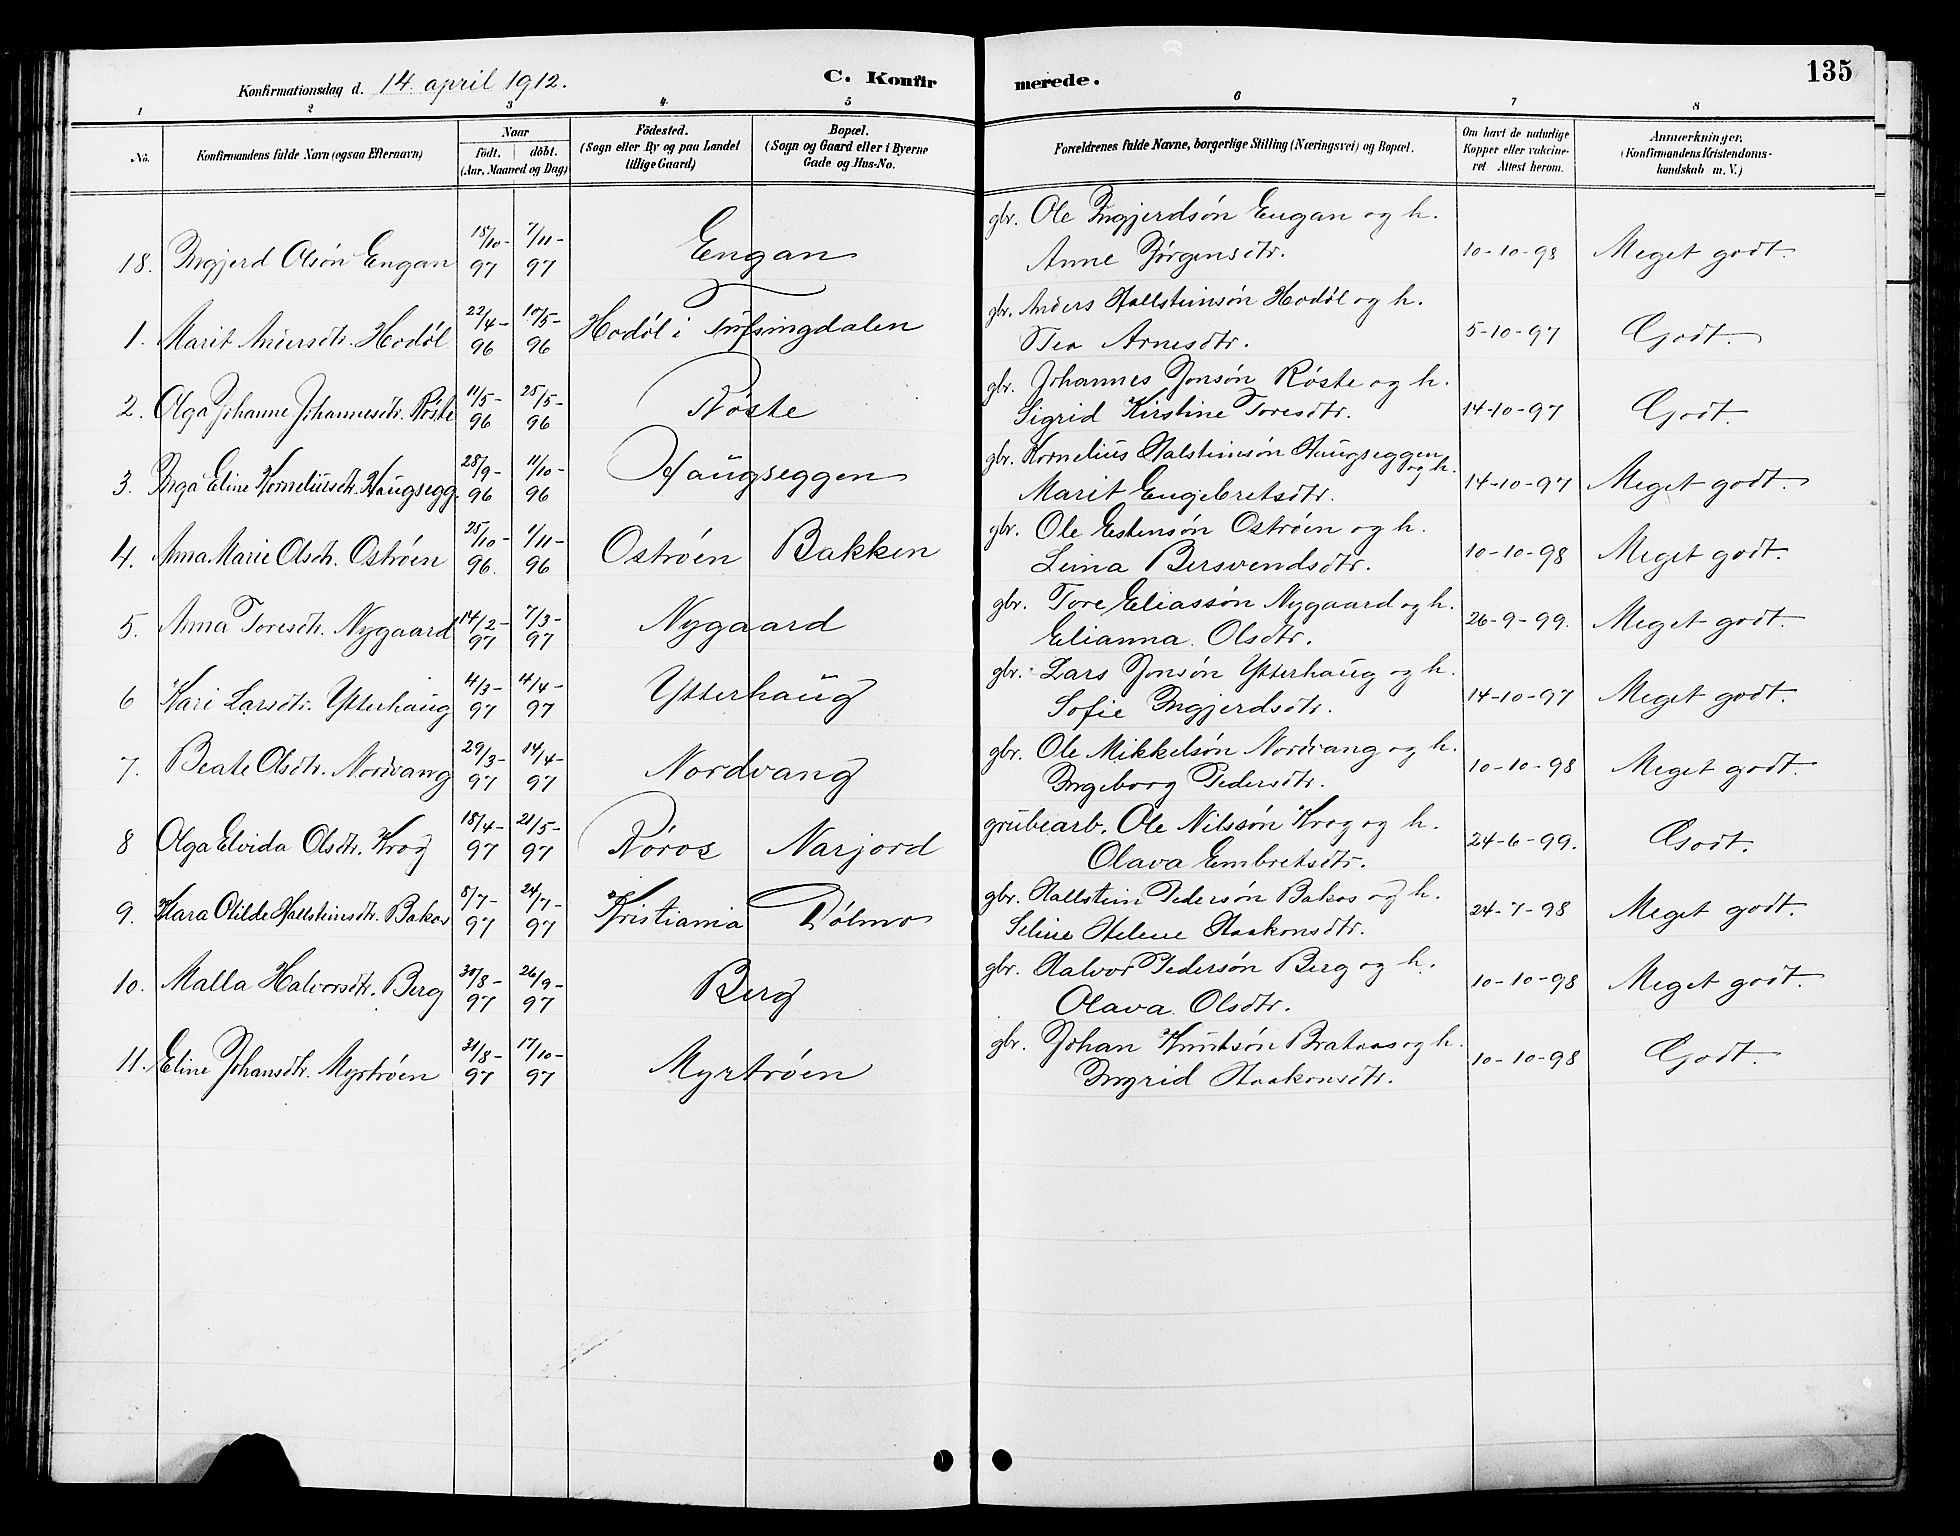 Konfirmationsdag d. 14. april 1912. C. Konfir
merede. 135
1 2 3 4 5 6 7 8
No. Konfirmandens fulde Navn (ogsaa Efternavn) Naar födt. döbt. (Aar, Maaned og Dag) Födested. (Sogn eller By og paa Landet tillige Gaard) Bopæl. (Sogn og Gaard eller i Byerne Gade og Hus-No. Forældrenes fulde Navne, borgerlige Stilling (Næringsvei) og Bopæl. Om havt de naturlige Kopper eller vakcineret Attest herom. Anmærkninger, (Konfirmandens Kristendomskundskab m. V.)
18. Ingjerd Olsön Engan 15/10-97 7/11-97 Engan gbr. Ole Ingjerdsön Engan og h. Anne Jørgensdtr. 10-10-98 Meget godt.
1. Marit Andersdtr. Hodöl 22/4-96 10/5-96 Hodöl i Tufsingdalen gbr. Anders Hallsteinsön Hodöl og h. Thea Arnesdtr. 5-10-97 Godt.
2. Olga Johanne Johannesdtr. Röste 11/5-96 25/5-96 Röste gbr. Johannes Jonsön Röste og h. Sigrid Kirstine Toresdtr. 14-10-97 Godt.
3. Inga Eline Korneliusdtr. Haugsegg. 28/9-96 11/10-96 Haugseggen gbr. Kornelius Halsteinsön Haugseggen og h. Marit Engebretsdtr. 14-10-97 Meget godt.
4. Anna Marie Olsdtr. Oströen 25/10-96. 1/11-96 Oströen Bakken gbr. Ole Estensön Oströen og h. Lina Bersvendsdtr. 10-10-98 Meget godt.
5. Anna Toresdtr. Nygaard 14/2-97 7/3-97 Nygaard gbr. Tore Eliassön Nygaard og h. Elianna Olsdtr. 26-9-99. Meget godt.
6 Kari Larsdtr. Ytterhaug 4/3-97 4/4-97 Ytterhaug gbr. Lars Jonsön Ytterhaug og h. Sofie Ingjerdsdtr. 14-10-97 Meget godt.
7. Beate Olsdtr. Nordvang 29/3-97 14/4-97 Nordvang gbr. Ole Mikkelsön Nordvang og h. Ingeborg Pedersdtr. 10-10-98 Meget godt.
8 Olga Elvida Olsdtr. Krog 18/4-97 21/5-97 Röros Narjord grubearb. Ole Nilssön Krog og h. Olava Embretsdtr. 24-6-99. Godt.
9. Klara Otilde Hallsteinsdtr. Bakos 8/7-97 24/7-97 Kristiania Dölmo gbr. Hallstein Pedersön Bakos og h. Seline Helene Haakonsdtr. 24-7-98 Meget godt.
10. Malla Halvorsdtr. Berg 30/8-97 26/9-97 Berg gbr. Halvor Pedersön Berg og h. Olava Olsdtr. 10-10-98 Meget godt.
11. Eline Johansdtr. Myrtröen 31/8-97 17/10-97 Myrtröen gbr. Johan Knutsön Brataas og h. Ingrid Haakonsdtr. 10-10-98 Godt.